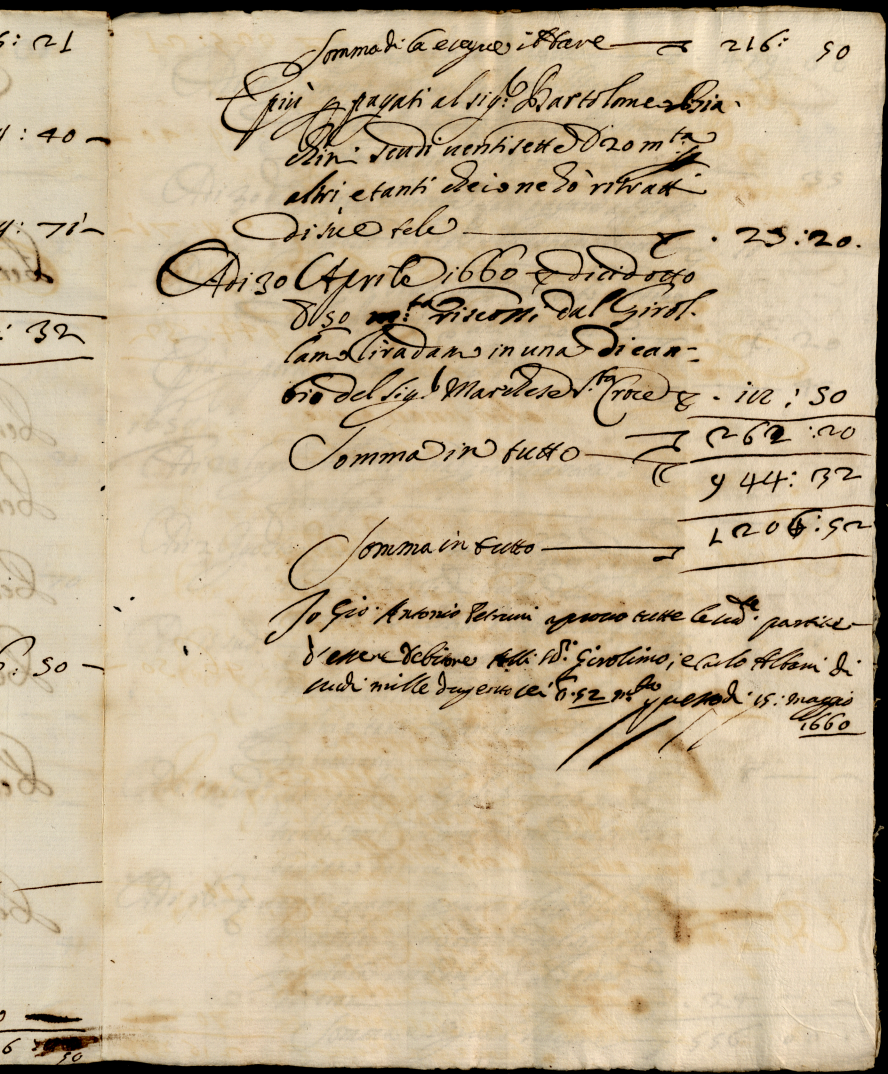 6: 21
4: 40
4: 71
: 32
6: 50
6 50
Somma di la e segue 216: 50
E più pagati al sig.r Bartolome Bia-
chin: scudi ventisette D 20 m.ta
altri e tanti che io ne hò ritratti
di sue tele . 25:20.
Adi 30 Aprile 1660 dicidotto
D 50 m.ta riscossi dal Girol-
lamo in una di cam-
bio del Sig.r Marchese S.ta Croce . : 50
262:20
Somma in tutto
944: 32
1206:52
Somma in tutto
Io Gio: Antonio Petruni aprovo tutte le sud.te partite
d'essere debitore alli sd.i Girolimo, e Carlo Albani di
scudi mille dugento sei b. 52 m.ta questo dì 15: maggio
1660